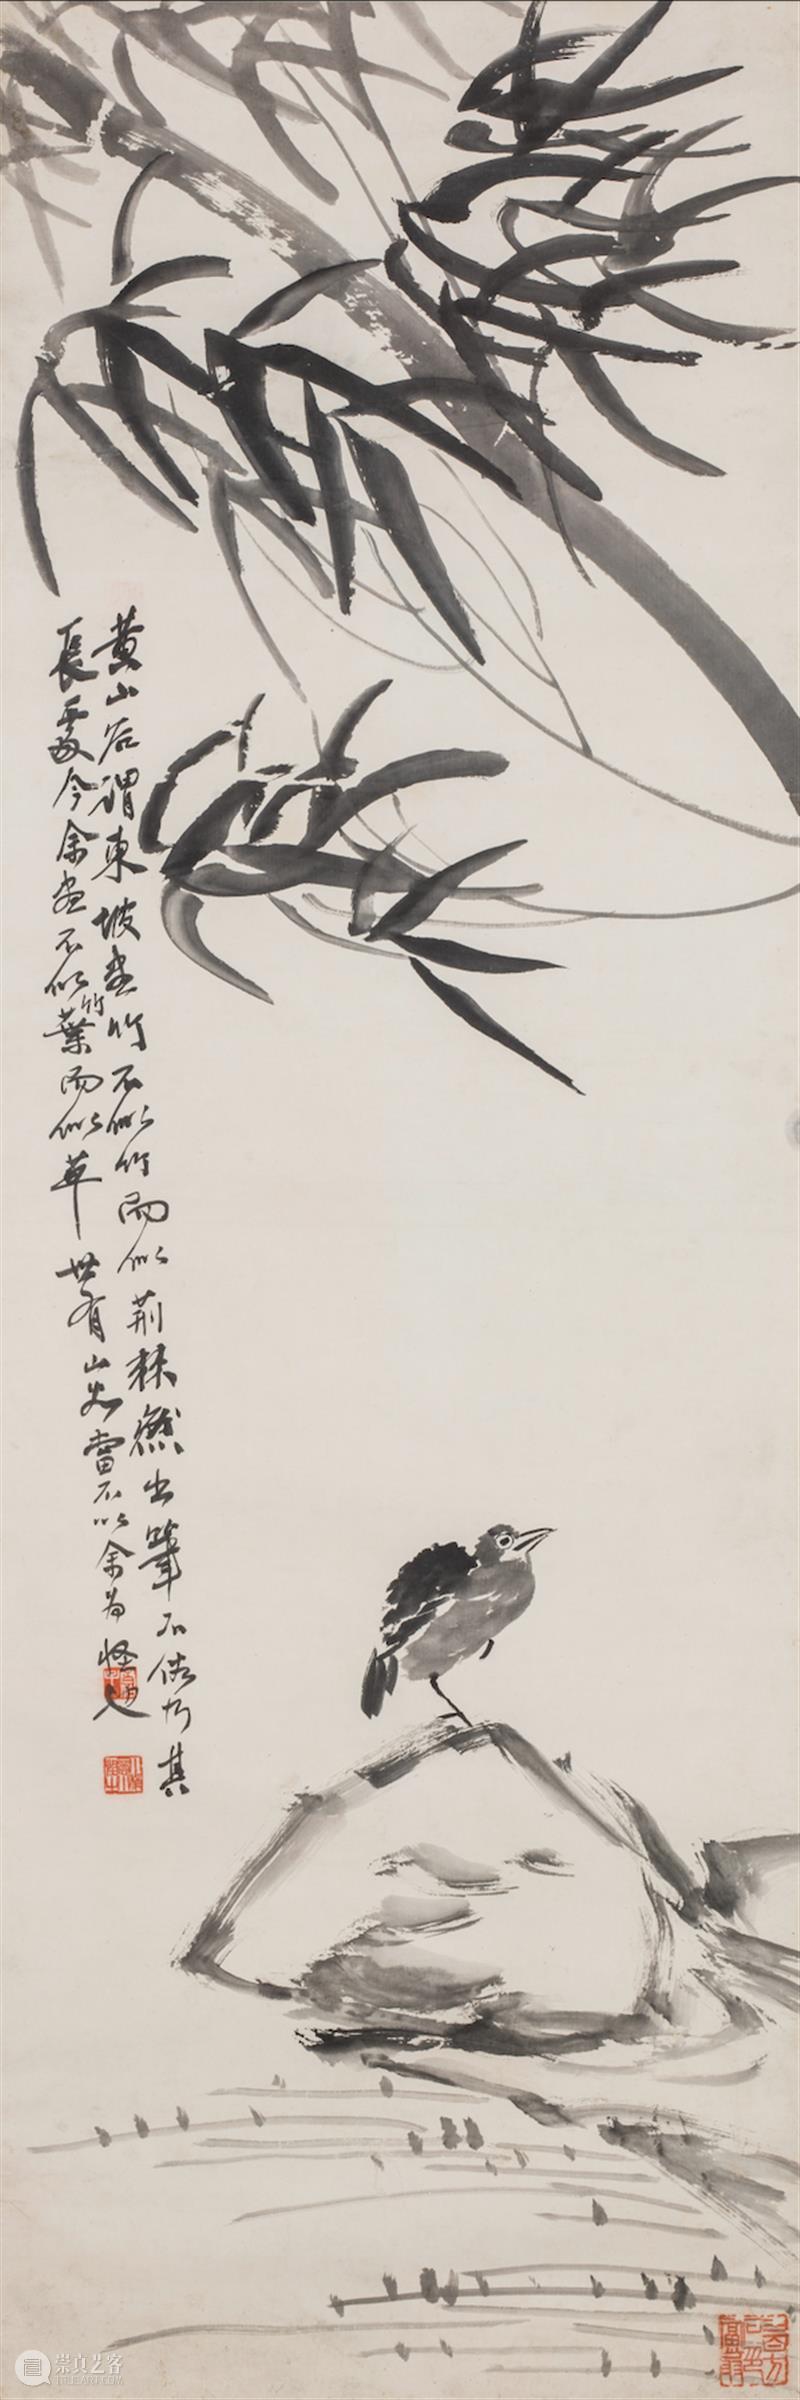 黄山谷謂東坡畫竹不似竹而似荆棘然出筆不俗乃其
長處今余畫不似竹葉而似草世有山當不以余為怪人
崇真艺客